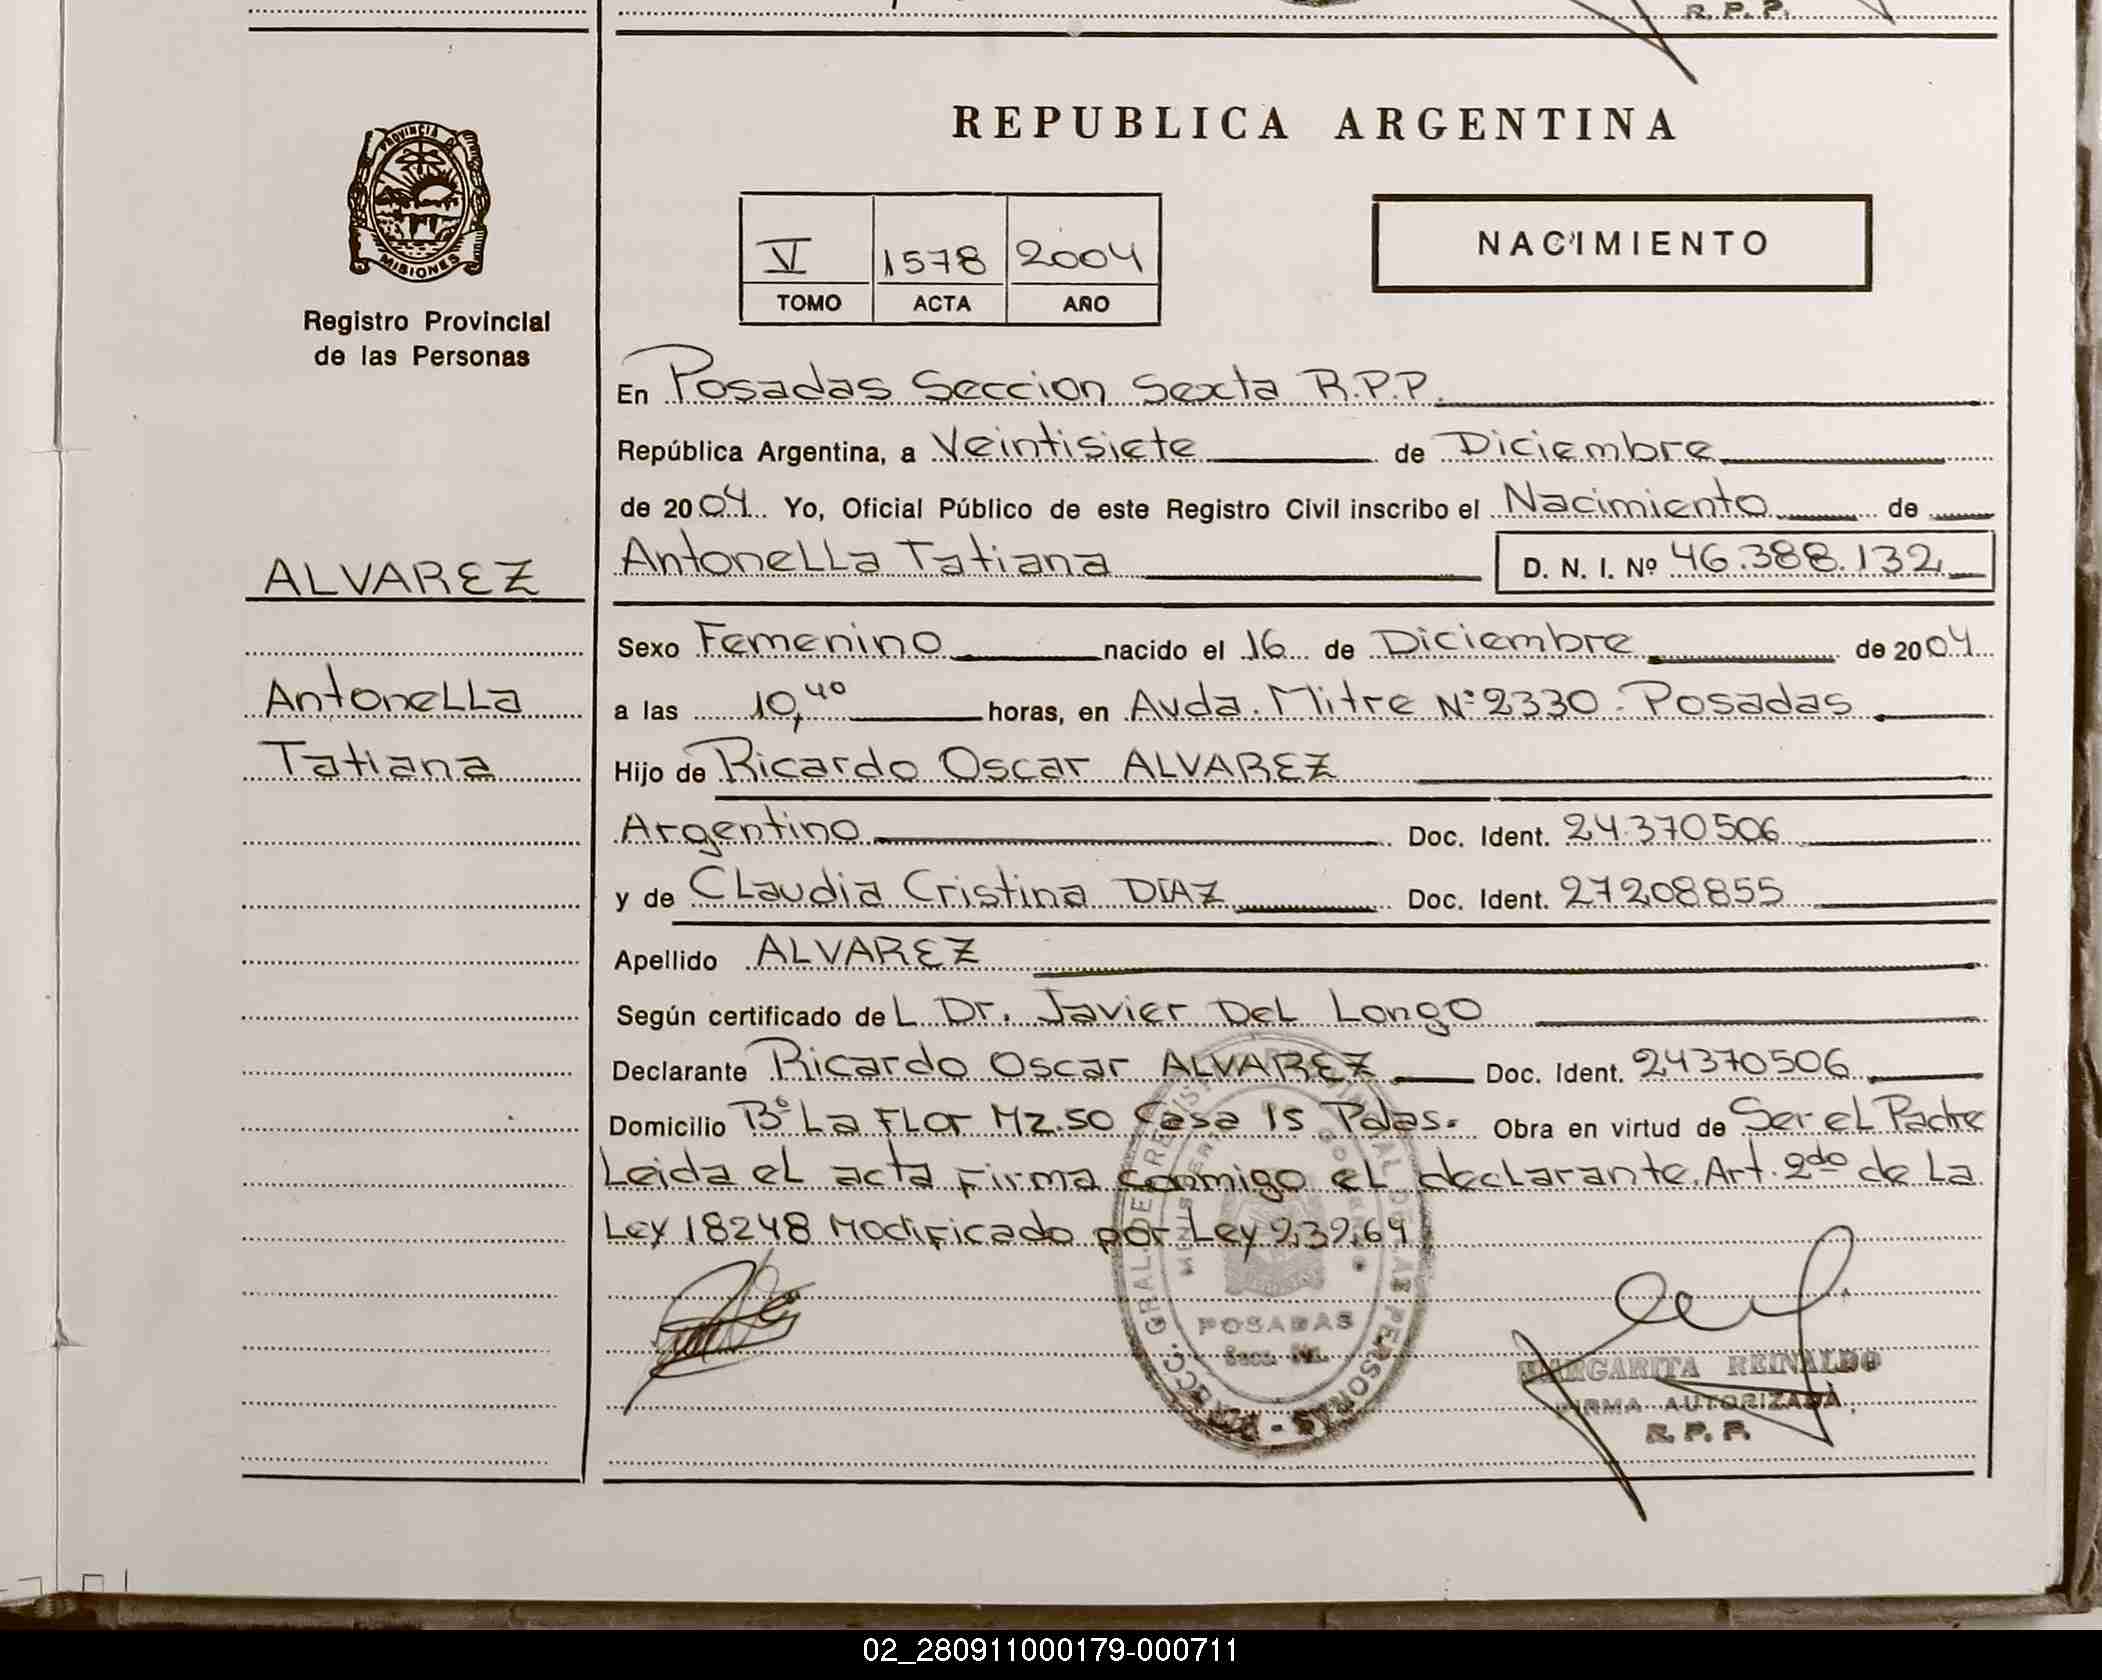 R. P. P.
PROVINCIA
MISIONES
Registro Provincial
de las Personas
ALVAREZ
Antonella
Tatiana
REPUBLICA ARGENTINA
V 1578 2004
TOMO ACTA AÑO
NACIMIENTO
En Posadas Seccion Sexta R.P.P.
República Argentina, a Veintisiete de Diciembre
de 2004 Yo, Oficial Público de este Registro Civil inscribo el Nacimiento de
Antonella Tatiana D. N. I. Nº 46.388.132
Sexo Femenino nacido el 16 de Diciembre de 2004
a las 10,40 horas, en Avda. Mitre Nº 2330 - Posadas
Hijo de Ricardo Oscar ALVAREZ
Argentino Doc. Ident. 24.370.506
y de Claudia Cristina DIAZ Doc. Ident. 27208855
Apellido ALVAREZ
Según certificado de L Dr. Javier Del Longo
Declarante Ricardo Oscar ALVAREZ Doc. Ident. 24370506
Domicilio Bº La Flor Mz. 50 Casa 15 Pdas. Obra en virtud de Ser el Padre
Leida el acta firma conmigo el declarante. Art. 2do de La
Ley 18248 Modificado por Ley 23264
POSADAS
MARGARITA REINALDO
FIRMA AUTORIZADA
R. P. P.
02_280911000179-000711